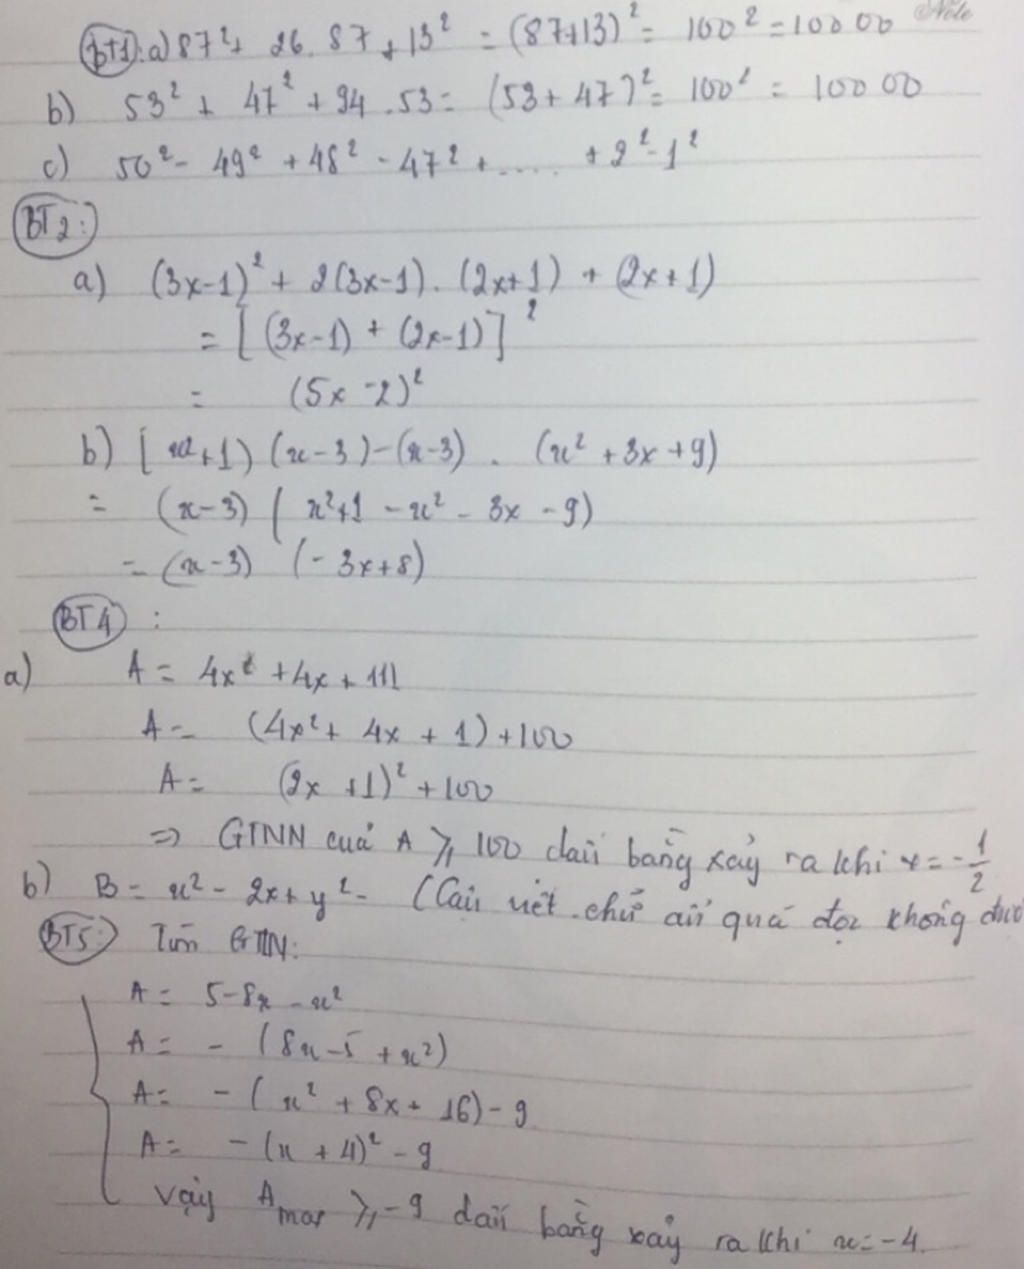 Note
BT1: a) 87² + 26. 87 + 13² = (87+13)² = 100² = 100 00
b) 53² + 47² + 94 . 53 = (53 + 47)² = 100² = 100 00
c) 50² - 49² + 48² - 47² + ..... + 2² - 1²
BT2:
a) (3x-1)² + 2(3x-1). (2x+1) + (2x+1)
= [ (3x-1) + (2x-1)]²
= (5x -2)²
b) [ x²+1) (x-3) -(x-3) . (x² + 3x +9)
= (x-3) ( x²+1 - x² - 3x - 9)
= (x-3) (- 3x+8)
BT4 :
a) A = 4x² + 4x + 111
A = (4x² + 4x + 1) +100
A = (2x +1)² + 100
=> GTNN cuả A ⩾ 100 dấu bằng xảy ra khi x = -1/2
b) B = x² - 2x + y² - (Cậu viết chữ ẩu quá đọc không được
BT5: Tìm GTLN:
A = 5-8x - x²
A = - (8x - 5 + x²)
A = - ( x² + 8x + 16) - 9
A = - (x + 4)² - 9
Vậy A max ⩾ -9 dấu bằng xảy ra khi x = -4.